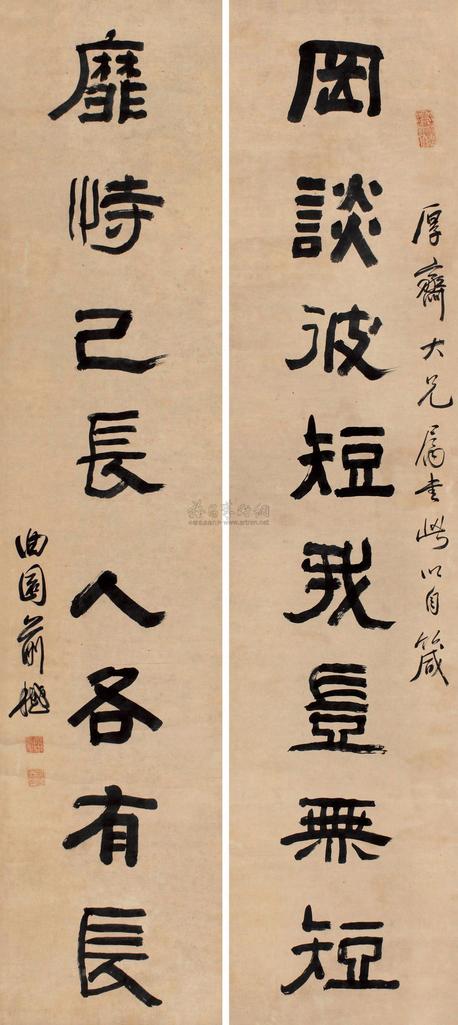 厚齋大兄屬書此以自箴
罔談彼短我豈無短
靡恃己長人各有長
曲園俞樾
www.artron.net